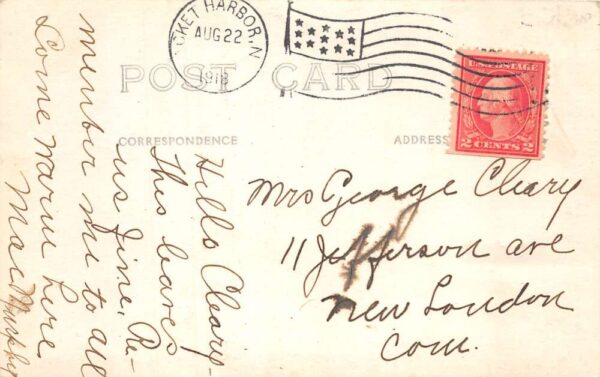 CKET HARBOR, N
AUG 22
1918
U.S. POSTAGE
2 CENTS 2
POST CARD
CORRESPONDENCE
ADDRESS
Hello Cleary-
This leaves
us fine. Re-
member me to all
Some warm here
Mae Murphy
Mrs George Cleary
11 Jefferson ave
New London
Conn.